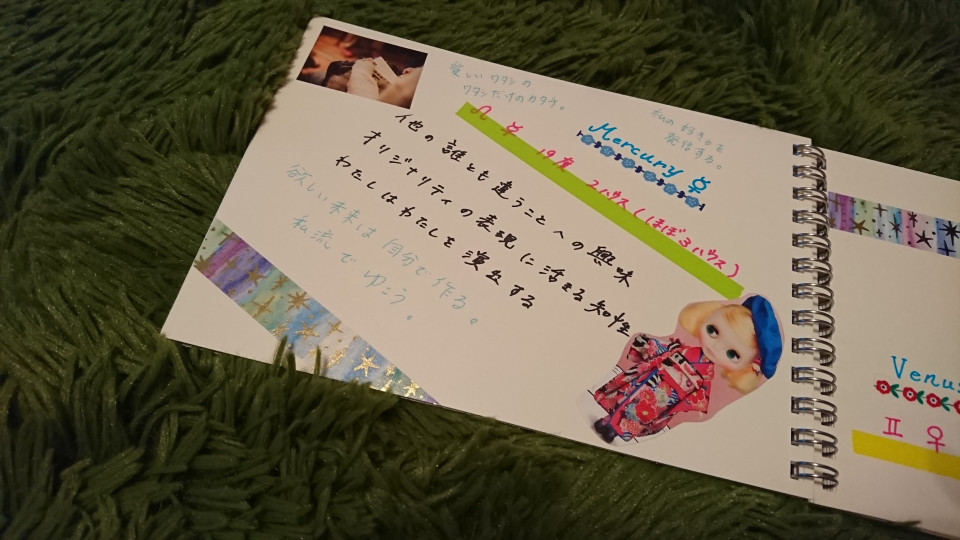 愛しいワタシの
ワタシだけのカタチ。
私の好きを
発信する。
Mercury ☿
♌ ☿ 19度 2ハウス(ほぼ3ハウス)
他の誰とも違うことへの興味
オリジナリティの表現に活きる知性
わたしはわたしを演出する
欲しい未来は自分で作る。
私流でゆこう。
Venus
♊ ♀